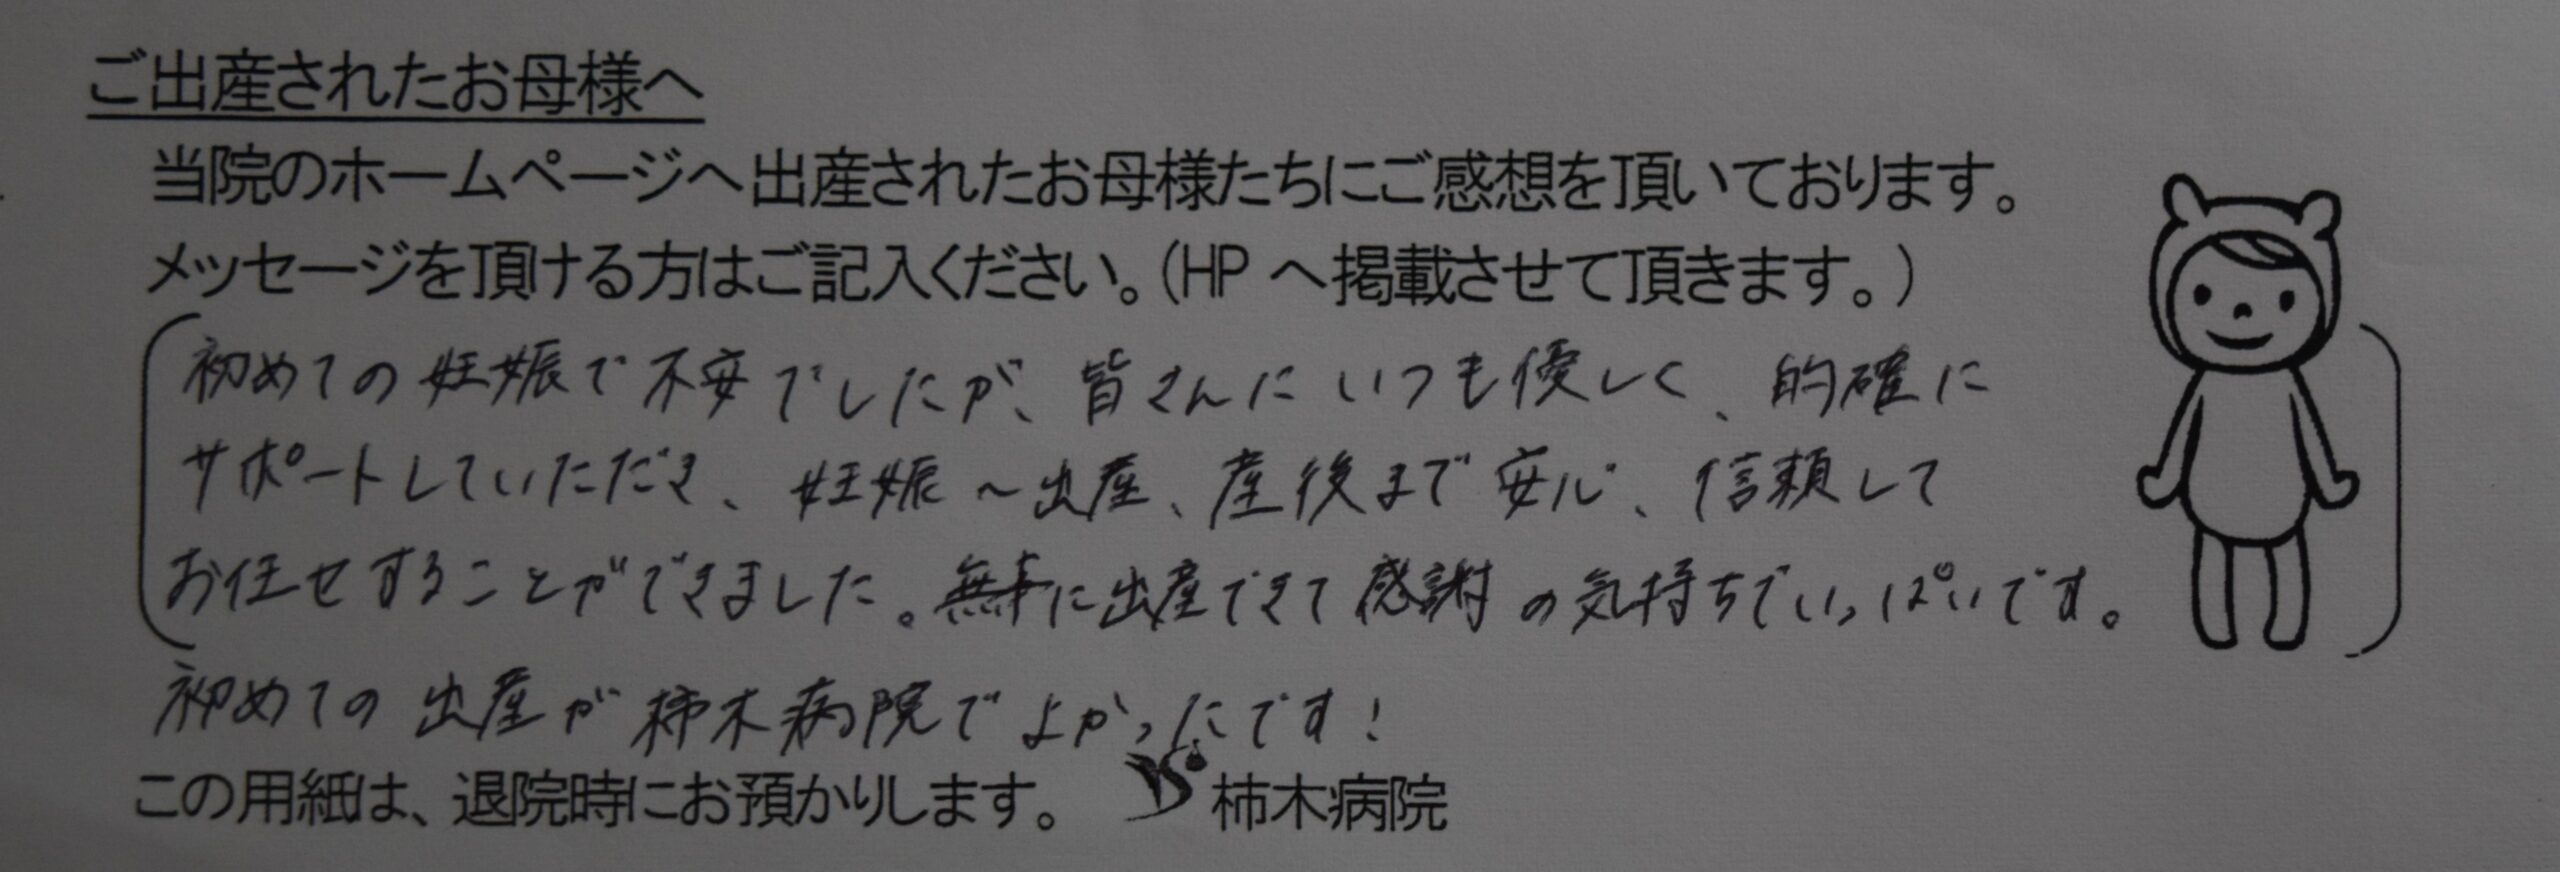 ご出産されたお母様へ
当院のホームページへ出産されたお母様たちにご感想を頂いております。
メッセージを頂ける方はご記入ください。(HP へ掲載させて頂きます。)
初めての妊娠で不安でしたが、皆さんにいつも優しく、的確に
サポートしていただき、妊娠～出産、産後まで安心、信頼して
お任せすることができました。無事に出産できて感謝の気持ちでいっぱいです。
初めての出産が柿木病院でよかったです！
この用紙は、退院時にお預かりします。 柿木病院